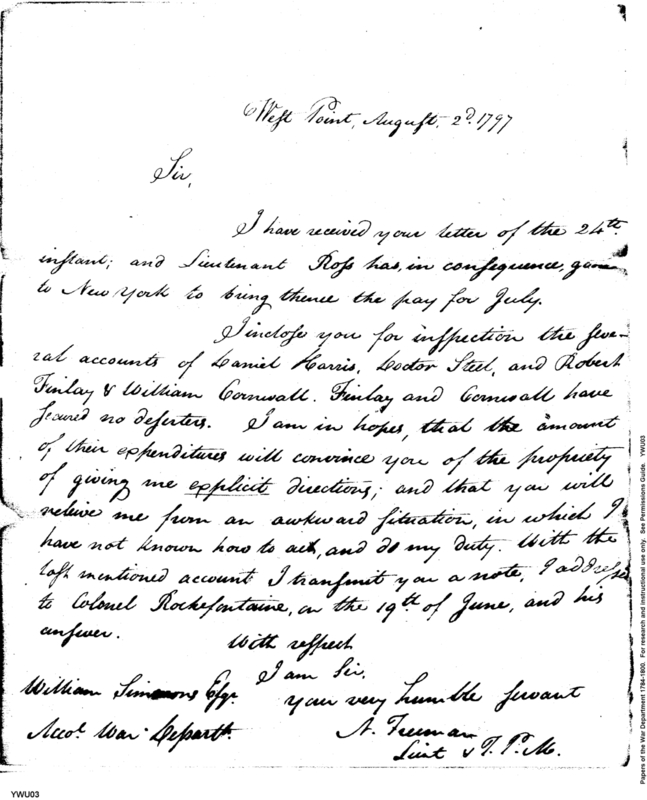 West Point, August, 2d. 1797
Sir,
I have received your letter of the 24th.
instant; and Lieutenant Ross has, in consequence, gone
to New York to bring thence the pay for July.
I inclose you for inspection the seve-
ral accounts of Daniel Harris, Doctor Steel, and Robert
Finlay & William Cornwall. Finlay and Cornwall have
secured no deserters. I am in hopes, that the amount
of their expenditures will convince you of the propriety
of giving me explicit directions; and that you will
relieve me from an awkward situation, in which I
have not known how to act, and do my duty. With the
last mentioned account I transmit you a note, I address'd
to Colonel Rochefontaine, on the 19th of June, and his
answer.
With respect
I am Sir,
your very humble servant
A. Freeman
Lieut & T. P. M.
William Simmons Esqr.
Accot. War Departt.
YWU03
Papers of the War Department 1784-1800. For research and instructional use only. See Permissions Guide. YWU03